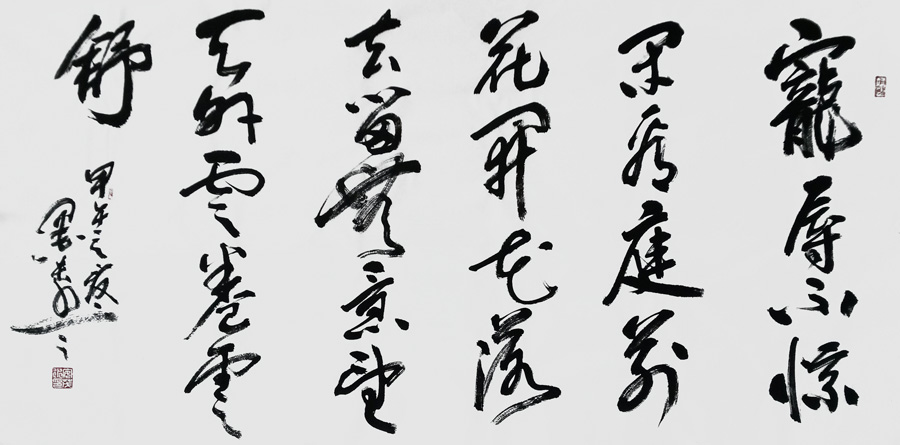 寵辱不惊
閑看庭前
花開花落
去留無意望
天外雲卷雲
舒
甲午之